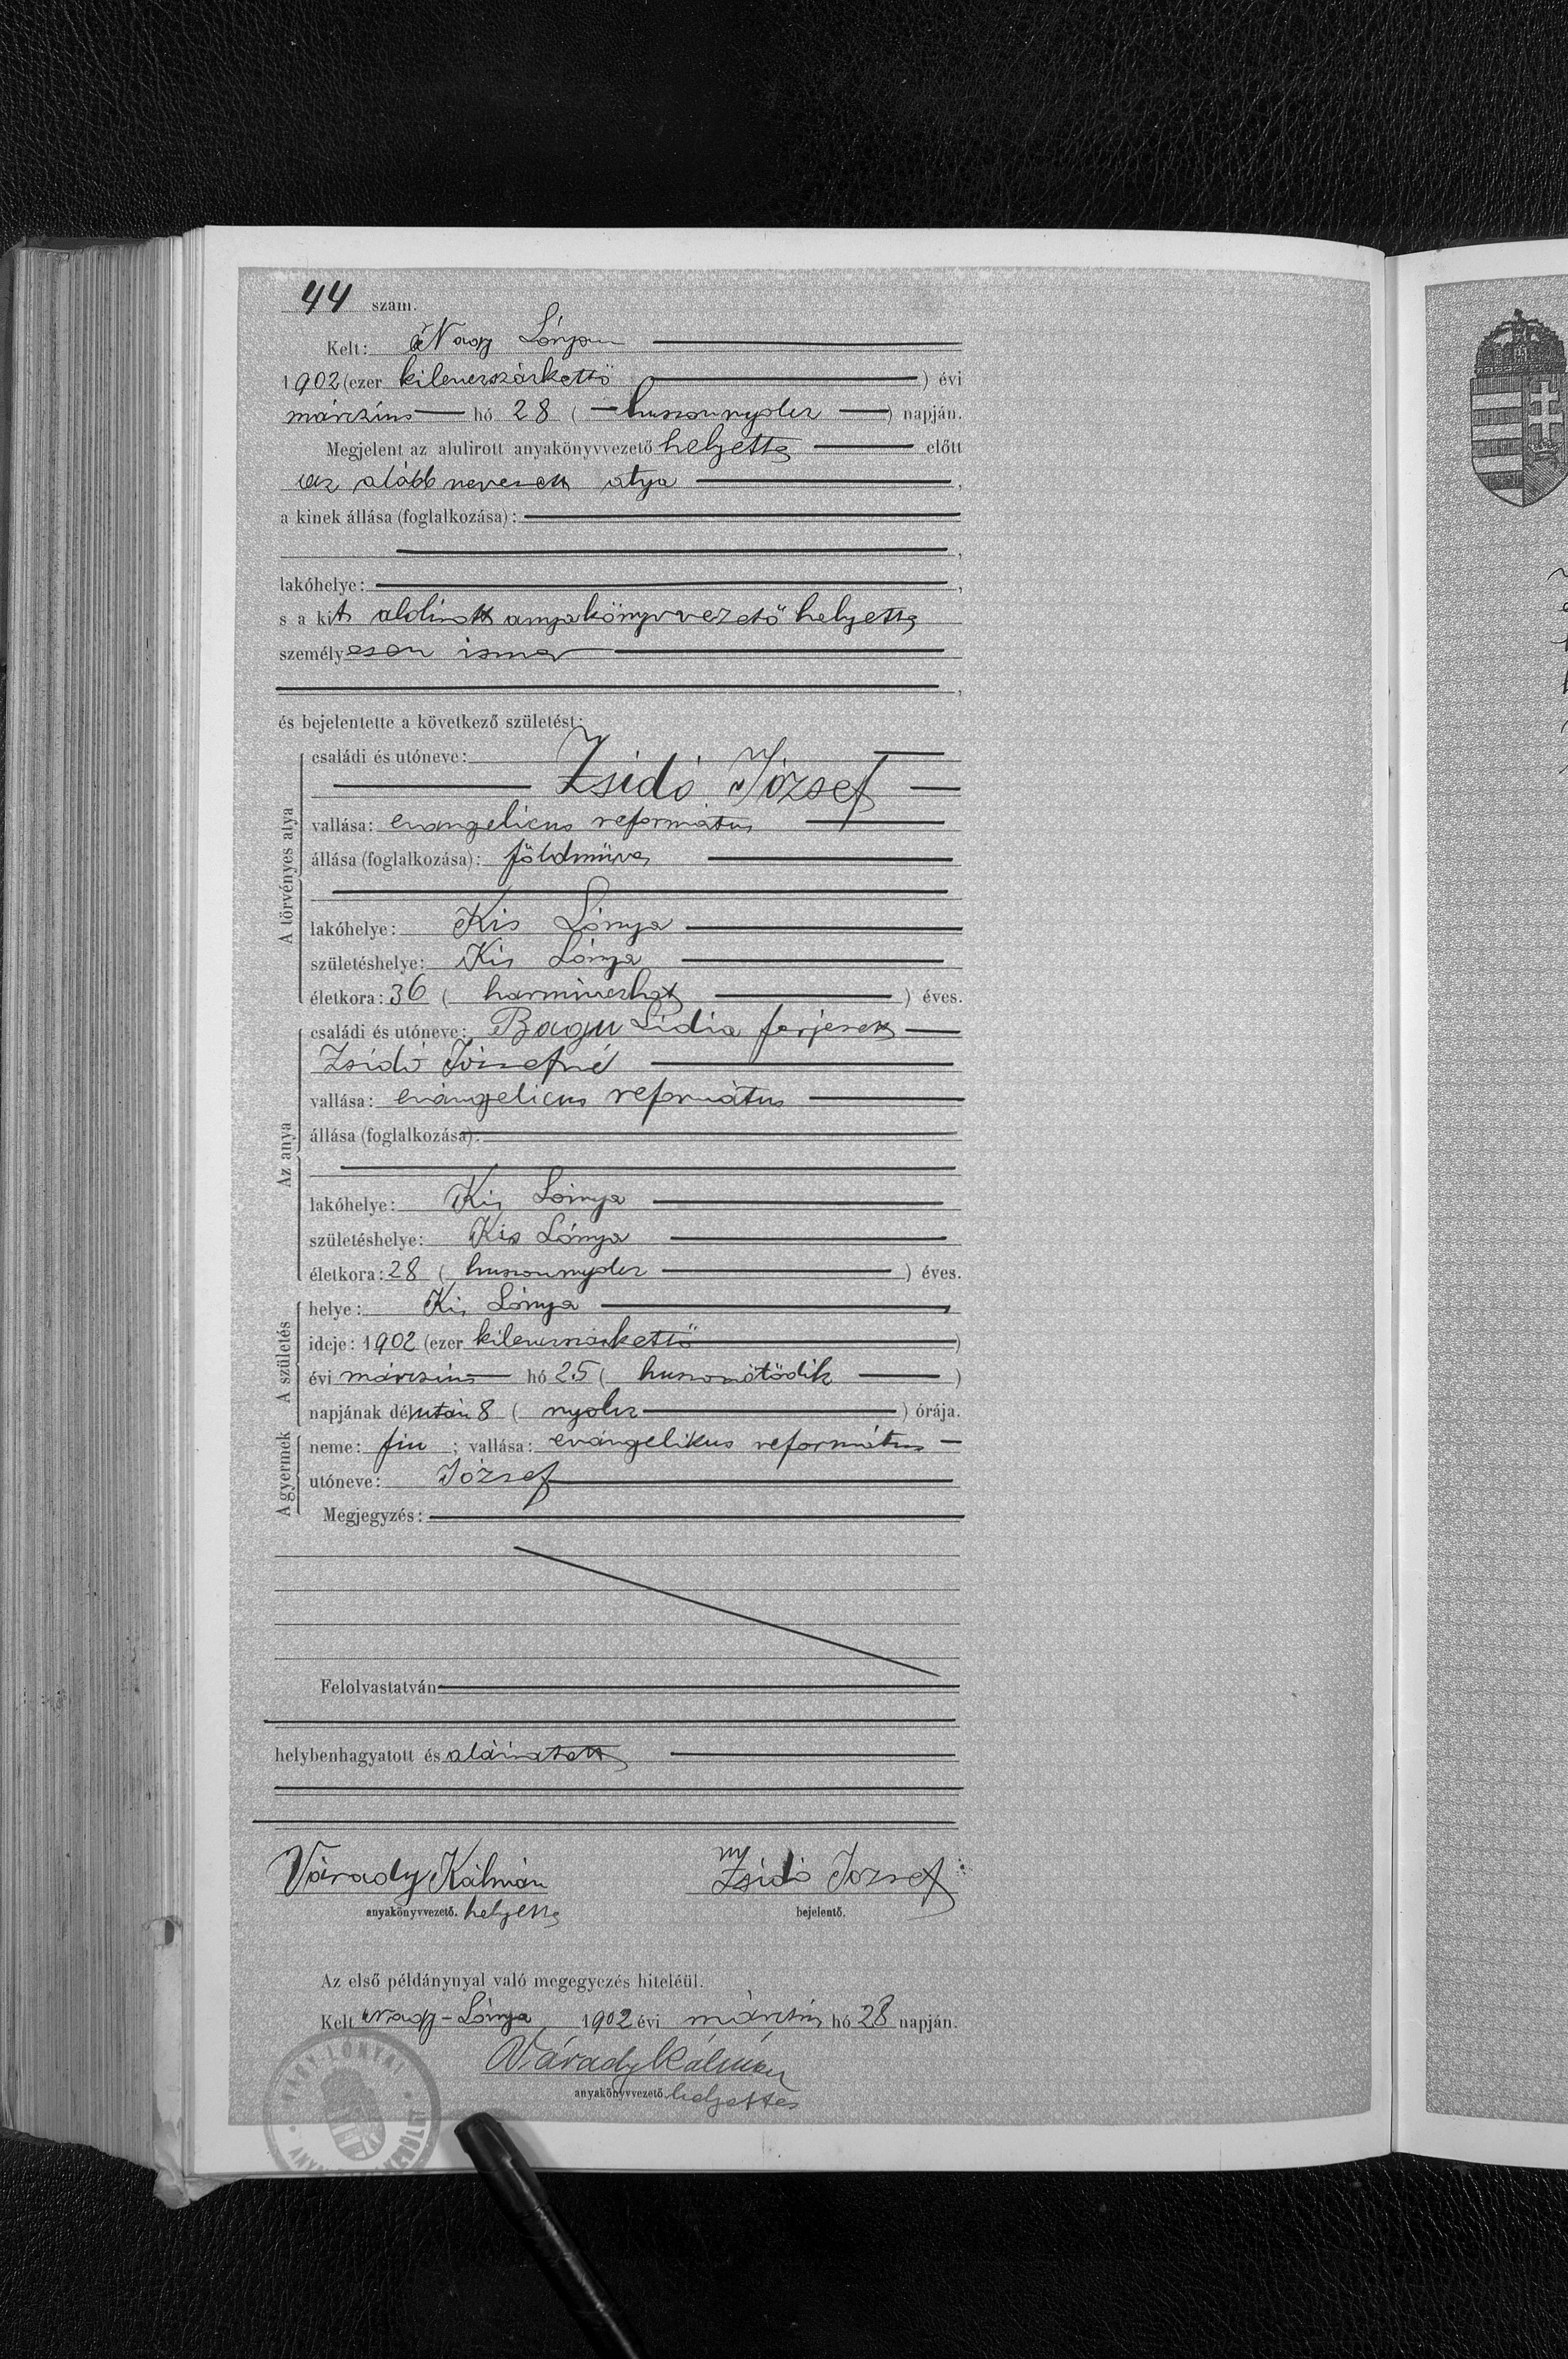 44 szám.
Kelt: Nagy Lónyán
1902 (ezer kilenczszázkettő ) évi
márczius hó 28 ( huszonnyolcz ) napján.
Megjelent az alulirott anyakönyvvezető helyettes előtt
az alább nevezett atya ,
a kinek állása (foglalkozása):
,
lakóhelye: ,
s a kit alólirott anyakönyvvezető helyettes
személyesen ismer
,
és bejelentette a következő születést:
A törvényes atya
családi és utóneve:
Zsidó József
vallása: evangelicus református
állása (foglalkozása): földműves
lakóhelye: Kis Lónya
születéshelye: Kis Lónya
életkora: 36 ( harminczhat ) éves.
Az anya
családi és utóneve: Bagu Lidia ferjezett
Zsidó Józsefné
vallása: evángelicus református
állása (foglalkozása):
lakóhelye: Kis Lónya
születéshelye: Kis Lónya
életkora: 28 ( huszonnyolcz ) éves.
A születés
helye: Kis Lónya
ideje: 1902 (ezer kilenczszázkettő )
évi márczius hó 25 ( huszonötödik )
napjának délután 8 ( nyolcz ) órája.
A gyermek
neme: fiu ; vallása: evángelikus református
utóneve: József
Megjegyzés:
Felolvastatván
helybenhagyatott és aláiratott
Várady Kálmán Zsidó József
anyakönyvvezető. helyettes bejelentő.
Az első példánynyal való megegyezés hiteléül.
Kelt Nagy-Lónya, 1902 évi márczius hó 28 napján.
Várady Kálmán
anyakönyvvezető helyettes
NAGY LÓNYAI